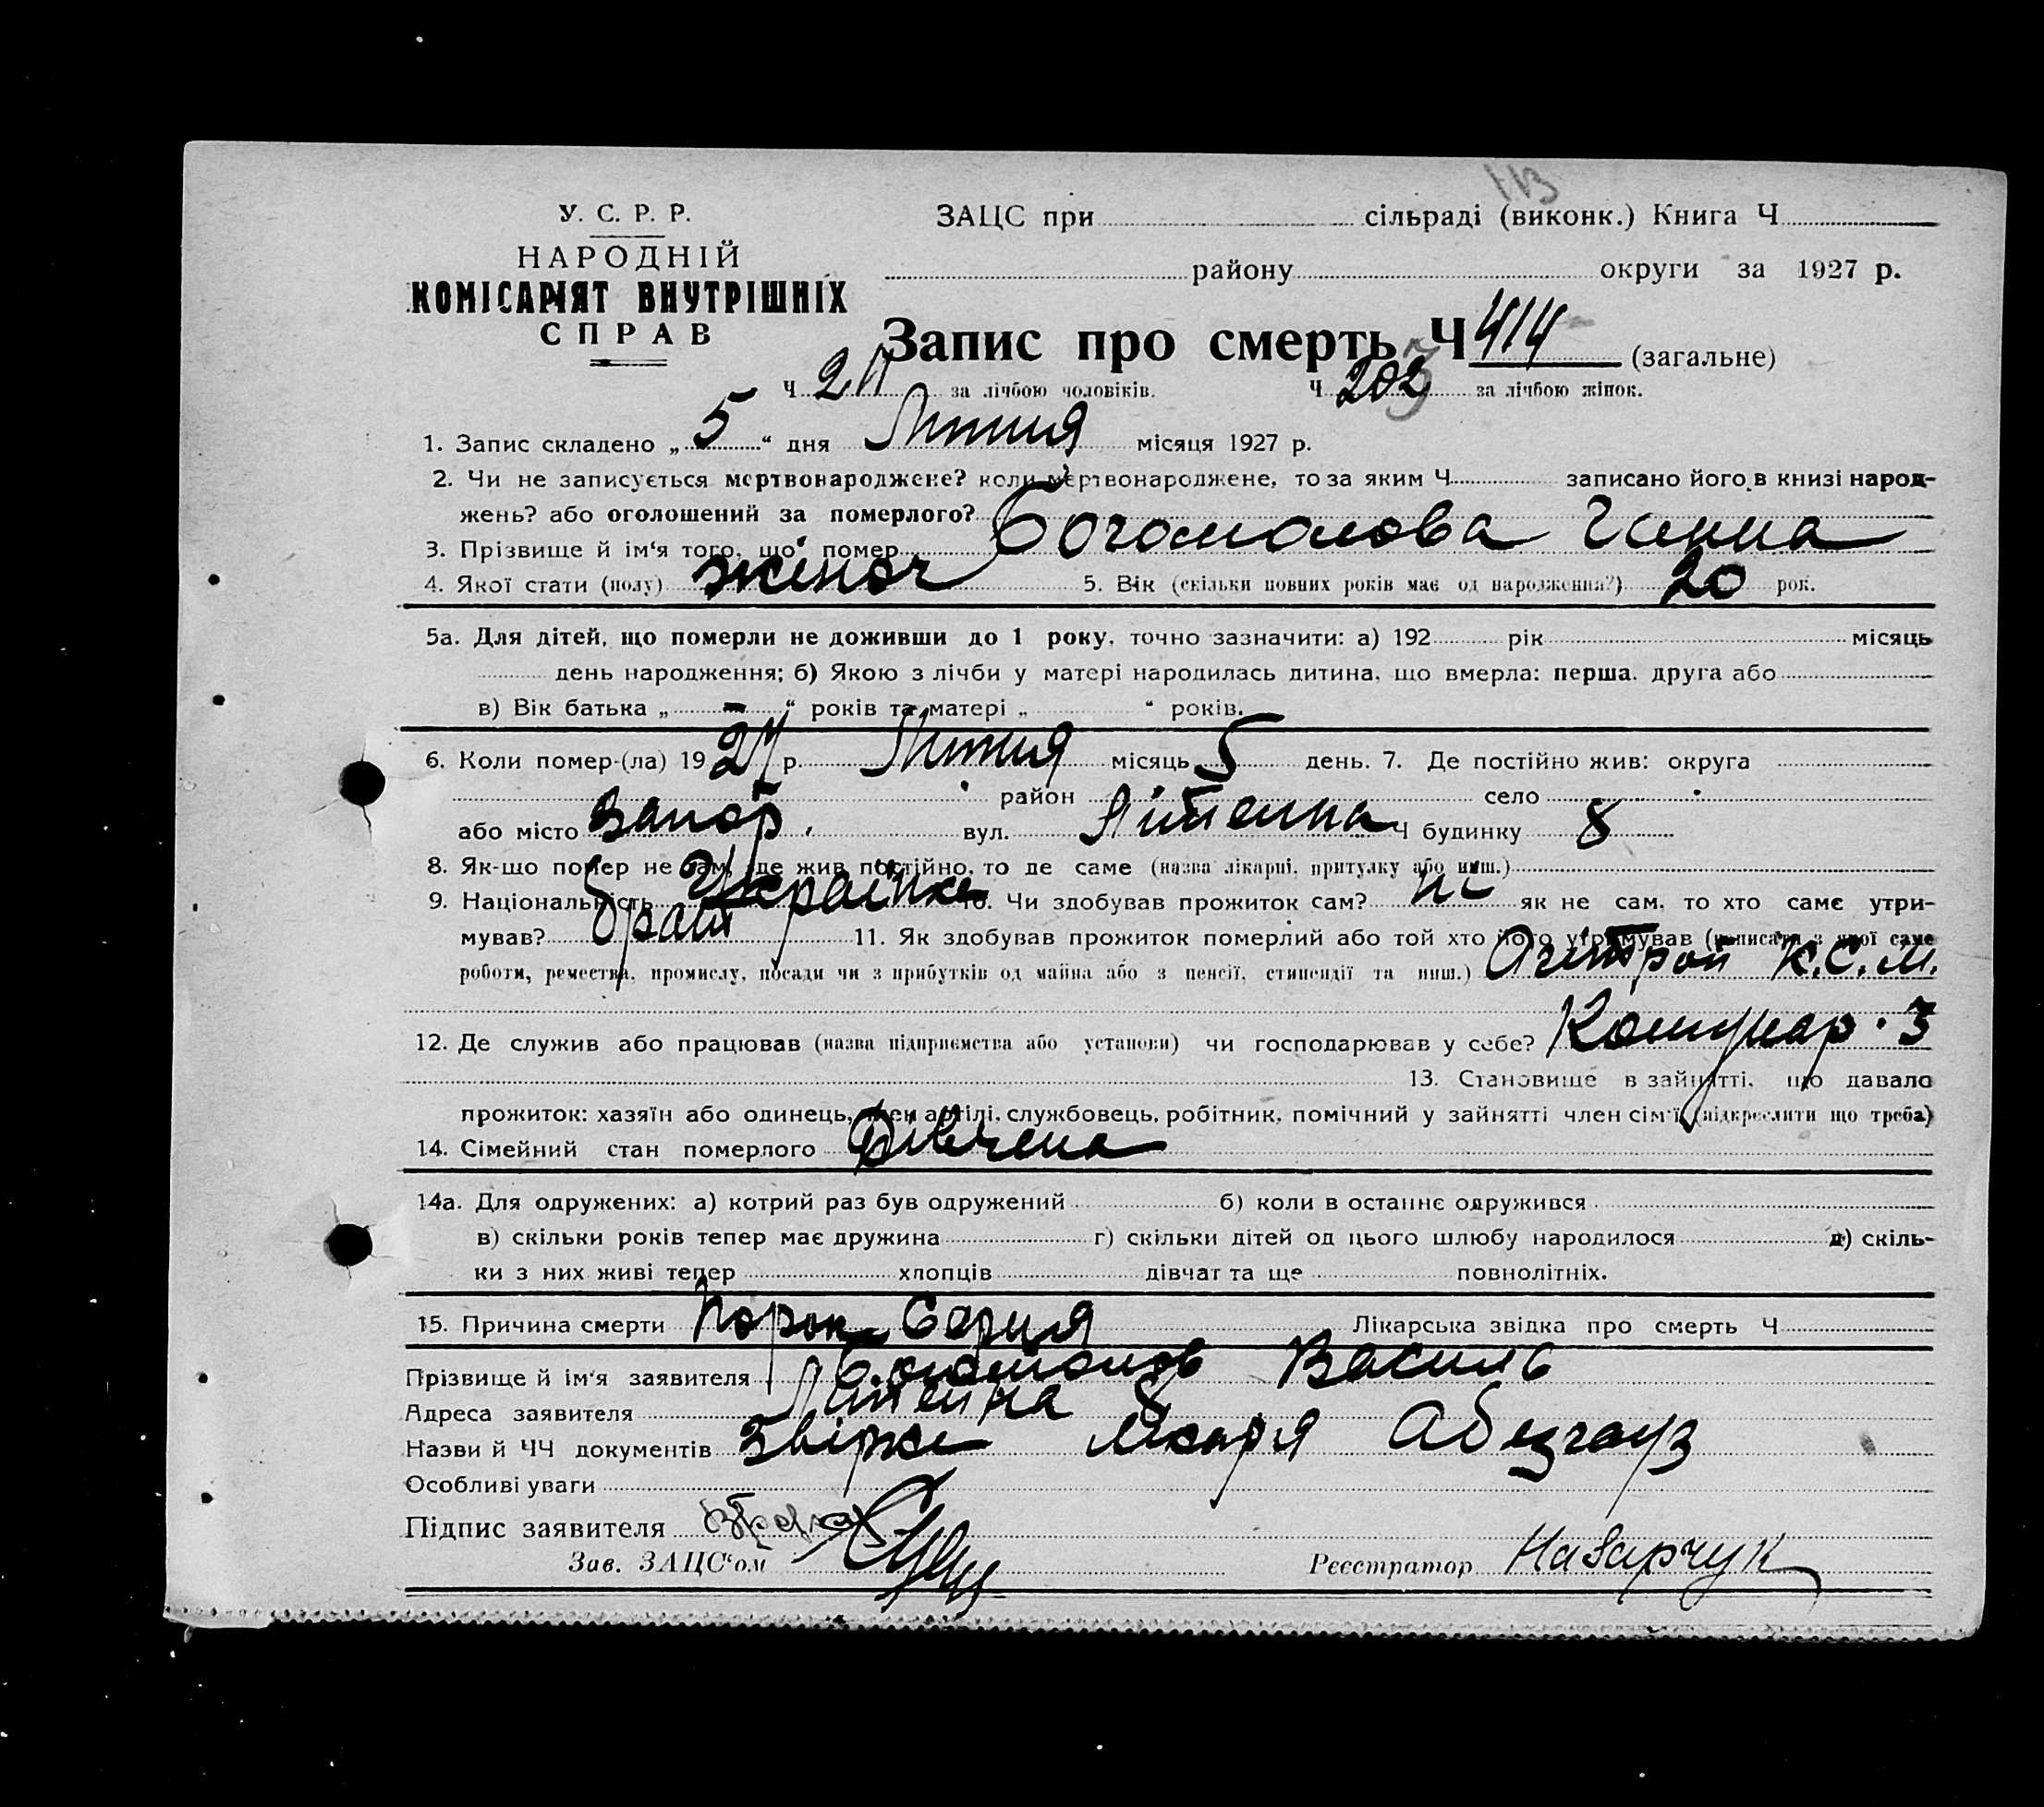 113
У. С. Р. Р.
НАРОДНІЙ
КОМІСАРІЯТ ВНУТРІШНІХ
СПРАВ
ЗАЦС при сільраді (виконк.) Книга Ч
району округи за 1927 р.
Запис про смерть Ч 414 (загальне)
Ч 211 за лічбою чоловіків. Ч 203 за лічбою жінок.
1. Запис складено „ 5 “ дня Липня місяця 1927 р.
2. Чи не записується мертвонароджене? коли мертвонароджене, то за яким Ч записано його в книзі народ-
жень? або оголошений за померлого?
3. Прізвище й ім‘я того, що помер Богомолова Ганна
4. Якої стати (полу) жіноч 5. Вік (скільки повних років має од народження?) 20 рок.
5а. Для дітей, що померли не доживши до 1 року, точно зазначити: а) 192 рік місяць
день народження; б) Якою з лічби у матері народилась дитина, що вмерла: перша, друга або
в) Вік батька „ “ років та матері „ “ років.
6. Коли помер-(ла) 1927 р. Липня місяць 5 день. 7. Де постійно жив: округа
район село
або місто Запор. вул. Літейна Ч будинку 8
8. Як-що помер не там, де жив постійно, то де саме (назва лікарні, притулку або инш.)
9. Національність Українка 10. Чи здобував прожиток сам? ні як не сам, то хто саме утри-
мував? брат 11. Як здобував прожиток померлий або той хто його утримував (написати з якої саме
роботи, ремества, промислу, посади чи з прибутків од майна або з пенсії, стипендії та инш.) К.С.М.
12. Де служив або працював (назва підприємства або установи) чи господарював у себе? Комунар. З
13. Становище в зайнятті, що давало
прожиток: хазяїн або одинець, член артілі, службовець, робітник, помічний у зайнятті член сім‘ї (підкреслити що треба)
14. Сімейний стан померлого Дівчена
14а. Для одружених: а) котрий раз був одружений б) коли в останнє одружився
в) скільки років тепер має дружина г) скільки дітей од цього шлюбу народилося д) скіль-
ки з них живі тепер хлопців дівчат та ще повнолітніх.
15. Причина смерти Порок Серця Лікарська звідка про смерть Ч
Прізвище й ім‘я заявителя Богомолов Василь
Адреса заявителя Літейна 8
Назви й ЧЧ документів лікаря Абезгауз
Особливі уваги
Підпис заявителя
Зав. ЗАЦС‘ом Реєстратор Назарчук